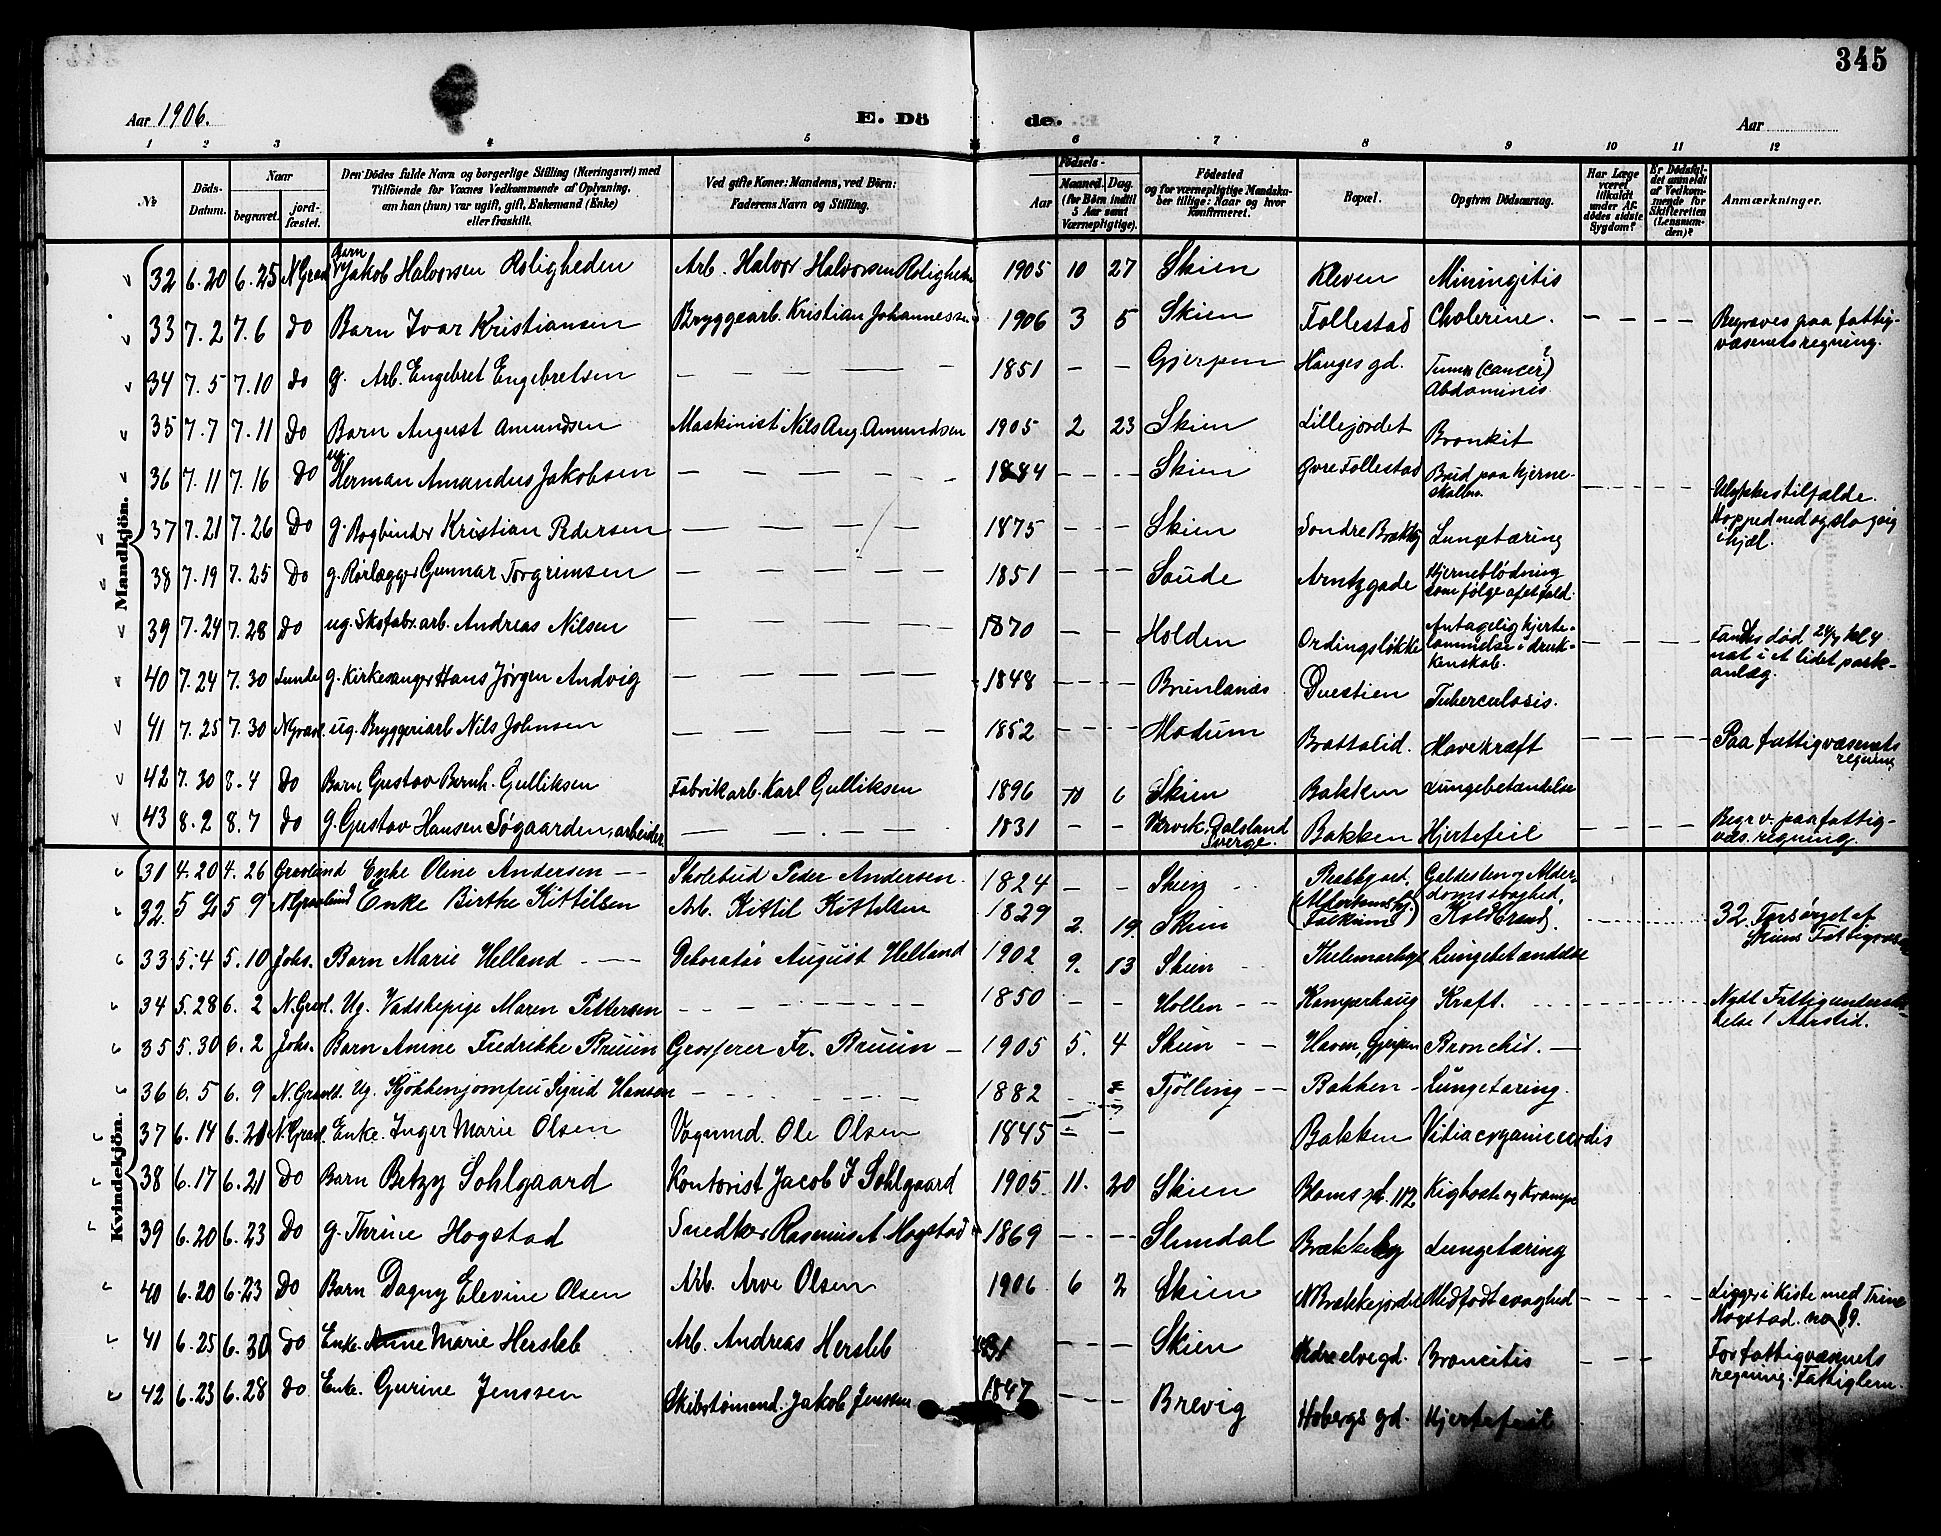 345
Aar 1906.
E. Dö de.
Aar
1 2 3 4 5 6 7 8 9 10 11 12
№
Döds-Datum.
Naar
begravet.
jord-fæstet.
Den Dödes fulde Navn og borgerlige Stilling (Næringsvei) med
Tilföiende for Voxnes Vedkommende af Oplysning,
om han (hun) var ugift, gift, Enkemand (Enke)
eller fraskilt.
Ved gifte Koner: Mandens, ved Börn:
Faderens Navn og Stilling.
Födsels-
Aar
Maaned. Dag.
(for Börn indtil
5 Aar samt
Værnepligtige).
Födested
og for værnepligtige Mandska-
ber tillige: Naar og hvor
konfirmeret.
Bopæl.
Opgiven Dödsaarsag.
Har Læge
været
tilkaldt
under Af-
dödes sidste
Sygdom?
Er Dödsfal-
det anmeldt
af Vedkom-
mende for
Skifteretten
(Lensman-
den)?
Anmærkninger.
Mandkjön.
32 6.20 6.25 N Gravl Barn Jakob Halvorsen Roligheden Arb. Halvor Halvorsen Roligheden 1905 10 27 Skien Kleven Miningitis
33 7.2 7.6 do Barn Ivar Kristiansen Bryggearb. Kristian Johannessen 1906 3 5 Skien Follestad Cholerine. Begraves paa fattig-
væsenets regning.
34 7.5 7.10 do g. Arb. Engebret Engebretsen 1851 Gjerpen Hauges gd. Tumor (cancer?)
Abdominis
35 7.7 7.11 Do Barn August Amundsen Maskinist Nils Aug. Amundsen 1905 2 23 Skien Lillejordet Bronkit
36 7.11 7.16 Do ug. Herman Amandus Jakobsen 1884 Skien Øvre Follestad Brud paa hjerne-
skallen. Ulykkestilfælde.
Hopped ned og slog sig
ihjel.
37 7.21 7.26 Do g. Bogbinder Kristian Pedersen 1875 Skien Søndre Brækkeby Lungetæring
38 7.19 7.25 Do g. Rørlægger Gunnar Torgrimsen 1851 Saude Arntzgade Hjerneblødning
som følge af et fald.
39 7.24 7.28 Do ug. Skofabr.arb. Andreas Nilsen 1870 Holden Ordingsløkke Antagelig hjerte-
lammelse i druk-
kenskab. Fandtes død 24/7 kl 4
nat i et lidet park-
anlæg.
40 7.24 7.30 Lunde g. Kirkesanger Hans Jørgen Andvig 1848 Brunlanæs Duestien Tuberculosis.
41 7.25 7.30 N Gravl. ug. Bryggeriarb Nils Johnsen 1852 Modum Brattalid. Mavekræft Paa fattigvæsenets
regning
42 7.30 8.4 Do Barn Gustav Bernh. Gulliksen Fabrikarb. Karl Gulliksen 1896 10 6 Skien Bakken Lungebetændelse
43 8.2 8.7 do g. Gustav Hansen Søgaarden, arbeider. 1831 Dalsland
Sverge. Bakken Hjertefeil Begr v. paa fattig-
væs. regning.
Kvindekjön.
31 4.20 4.26 Gravlund Enke Oline Andersen Skolebud Peder Andersen. 1824 Skien Galdesten og Alder-
domssvaghed.
32. 5 5 9 N. Gravlund Enke Birthe Kittilsen Arb. Kittil Kittelsen 1829 2. 19. Skien Koldbrand. 32. Forsørget af
Skiens Fattigvæsen
33 5.4 5.10 Johs. Barn Marie Helland Dekoratør August Helland 1902 9. 13 Skien Lungebetændelse
34 5.28 6.2 N. Gravl. Ug. Vadskepige Maren Pettersen 1850 Hollen Kamperhaug Kræft. Nydt Fattigunderstø-
telse 1 Aarstid.
35 5.30 6.2 Johs. Barn Anine Fredrikke Bruun Grosserer Fr. Bruun 1905 5. 4 Skien Haven, Gjerpen Bronchit.
36 6.5 6.9 N. Gravl. Ug. Kjøkkenjomfru Sigrid Hansen 1882 Tjølling Bakken Lungetæring.
37 6.14 6.21 N. Gravl Enke. Inger Marie Olsen Vognmd. Ole Olsen 1845 Bakken Vitia organic cordis
38 6.17 6.21 Do Barn Betzy Sohlgaard Kontorist Jacob I Sohlgaard 1905 11. 20 Skien Bloms gd. 112 Kighoste og Krampe
39 6.20 6.23 Do g. Thrine Hogstad Snedker Rasmus A. Hogstad 1869 Slemdal Brækkeby Lungetæring
40 6.20 6.23 Do Barn Dagny Elevine Olsen Arb. Arve Olsen 1906 6 2 Skien N Brækkejordet Medfødt svaghed Ligger i Kiste med Trine
Hogstad. no 39.
41 6.25 6.30 do Enke. Anne Marie Hersleb Arb. Andreas Hersleb Skien elvegd. Broncitis For fattigvæsnets
regning. fattiglem.
42 6.23 6.28 do Enke. Gurine Jenssen Skibstømmd. Jakob Jenssen 1847 Brevig Hobergs gd. Hjertefeil